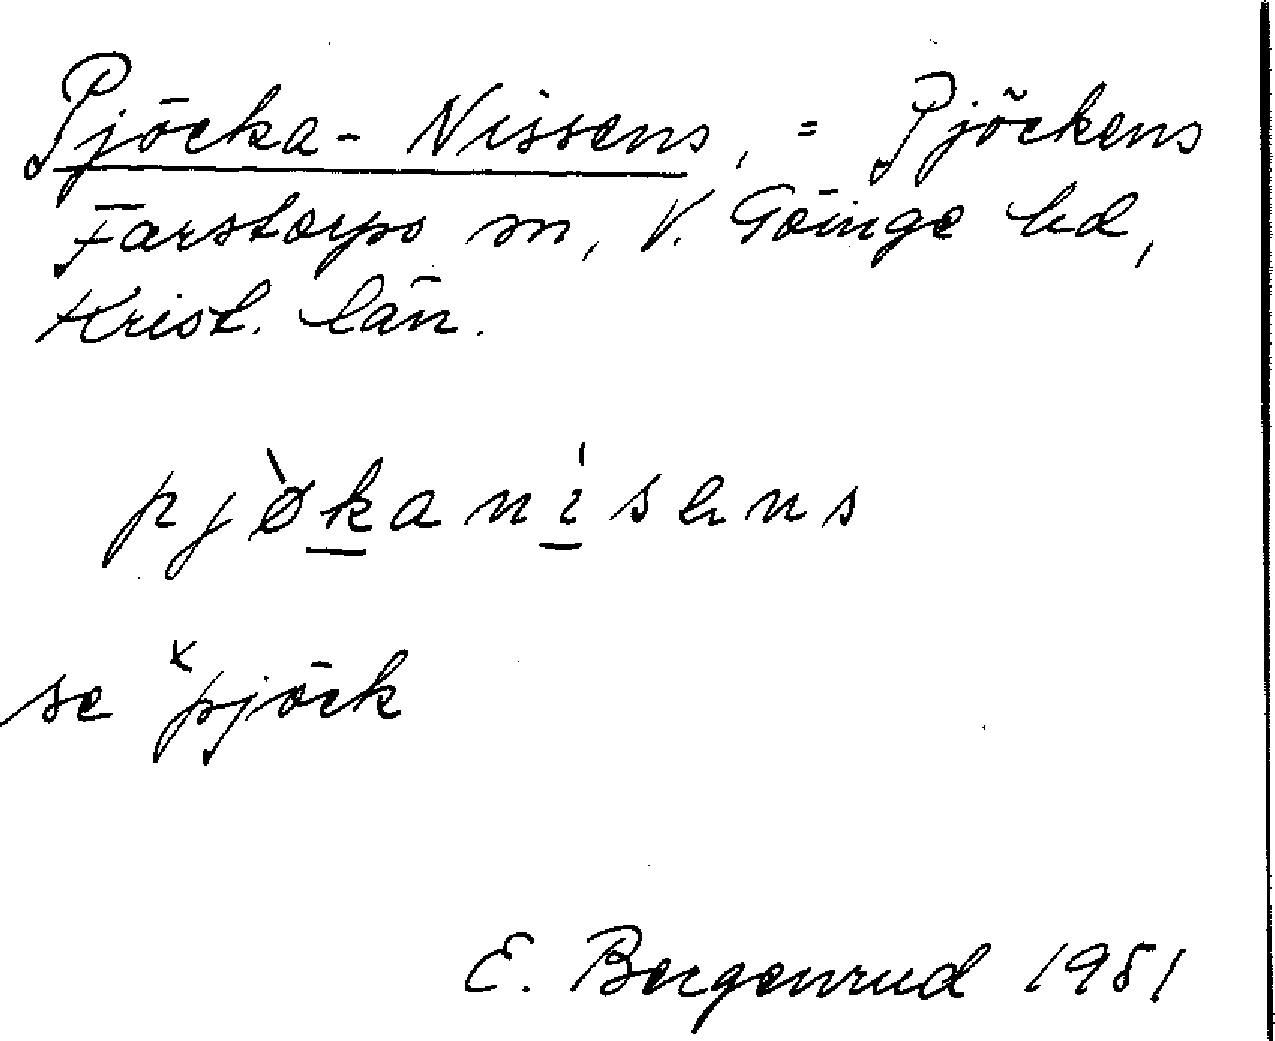 Pjöcka-Nissens, = Pjöckens
Farstorps sn, V. Göinge hd,
Krist. län.
pjø̀kanísens
se ˣpjöck
E. Bergenrud 1981